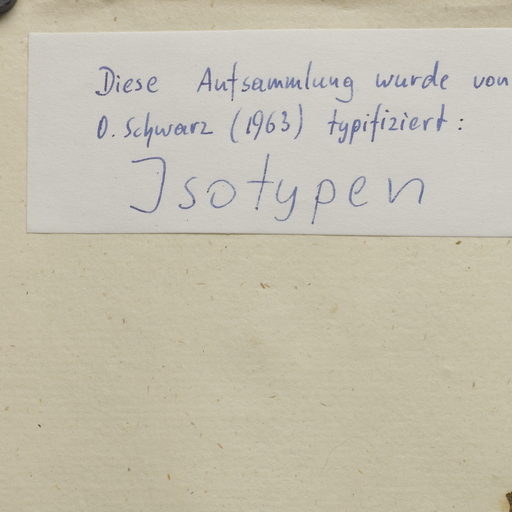 Diese Aufsammlung wurde von
O. Schwarz (1963) typifiziert:
Isotypen